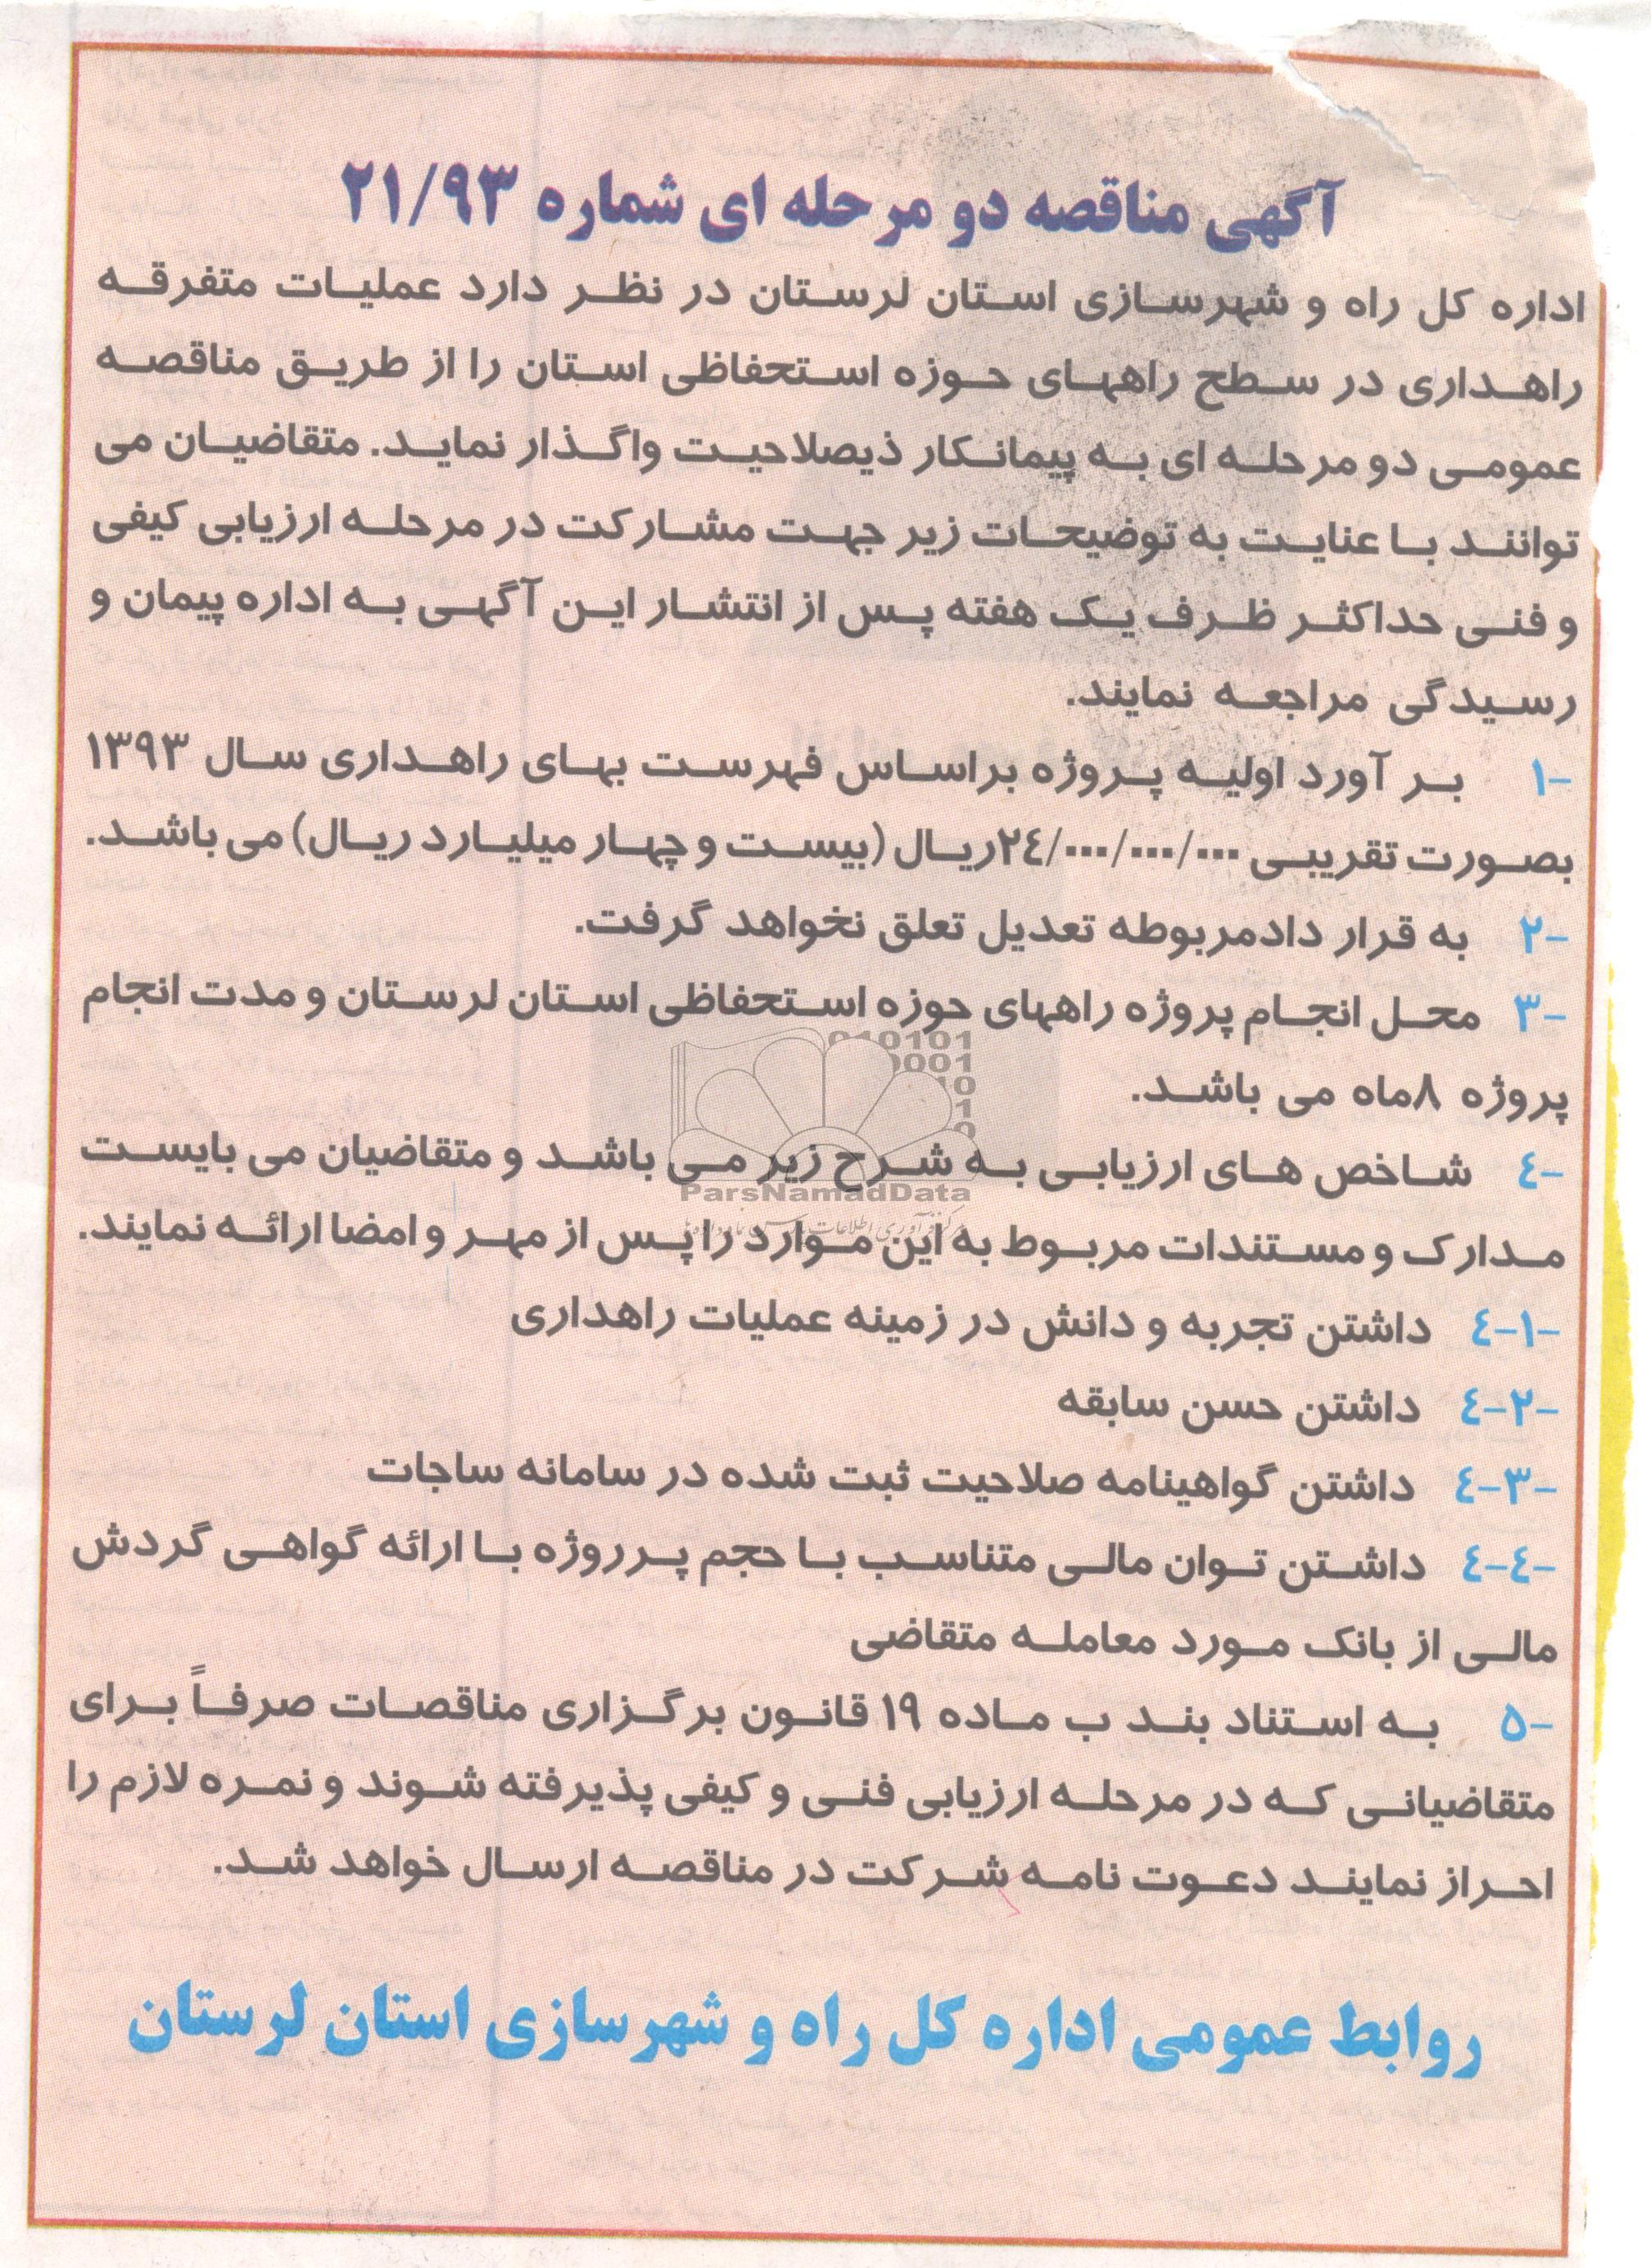 آگهی مناقصه دو مرحله ای شماره ۲۱/۹۳
اداره کل راه و شهرسازی استان لرستان در نظر دارد عملیات متفرقه
راهداری در سطح راههای حوزه استحفاظی استان را از طریق مناقصه
عمومی دو مرحله ای به پیمانکار ذیصلاحیت واگذار نماید. متقاضیان می
توانند با عنایت به توضیحات زیر جهت مشارکت در مرحله ارزیابی کیفی
و فنی حداکثر ظرف یک هفته پس از انتشار این آگهی به اداره پیمان و
رسیدگی مراجعه نمایند.
۱- بر آورد اولیه پروژه براساس فهرست بهای راهداری سال ۱۳۹۳
بصورت تقریبی ۲٤/۰۰۰/۰۰۰/۰۰۰ریال (بیست و چهار میلیارد ریال) می باشد.
۲- به قرار دادمربوطه تعدیل تعلق نخواهد گرفت.
۳- محل انجام پروژه راههای حوزه استحفاظی استان لرستان و مدت انجام
پروژه ۸ماه می باشد.
٤- شاخص های ارزیابی به شرح زیر می باشد و متقاضیان می بایست
مدارک و مستندات مربوط به این موارد را پس از مهر و امضا ارائه نمایند.
٤-۱- داشتن تجربه و دانش در زمینه عملیات راهداری
٤-۲- داشتن حسن سابقه
٤-۳- داشتن گواهینامه صلاحیت ثبت شده در سامانه ساجات
٤-٤- داشتن توان مالی متناسب با حجم پرروژه با ارائه گواهی گردش
مالی از بانک مورد معامله متقاضی
۵- به استناد بند ب ماده ۱۹ قانون برگزاری مناقصات صرفاً برای
متقاضیانی که در مرحله ارزیابی فنی و کیفی پذیرفته شوند و نمره لازم را
احراز نمایند دعوت نامه شرکت در مناقصه ارسال خواهد شد.
روابط عمومی اداره کل راه و شهرسازی استان لرستان
ParsNamadData